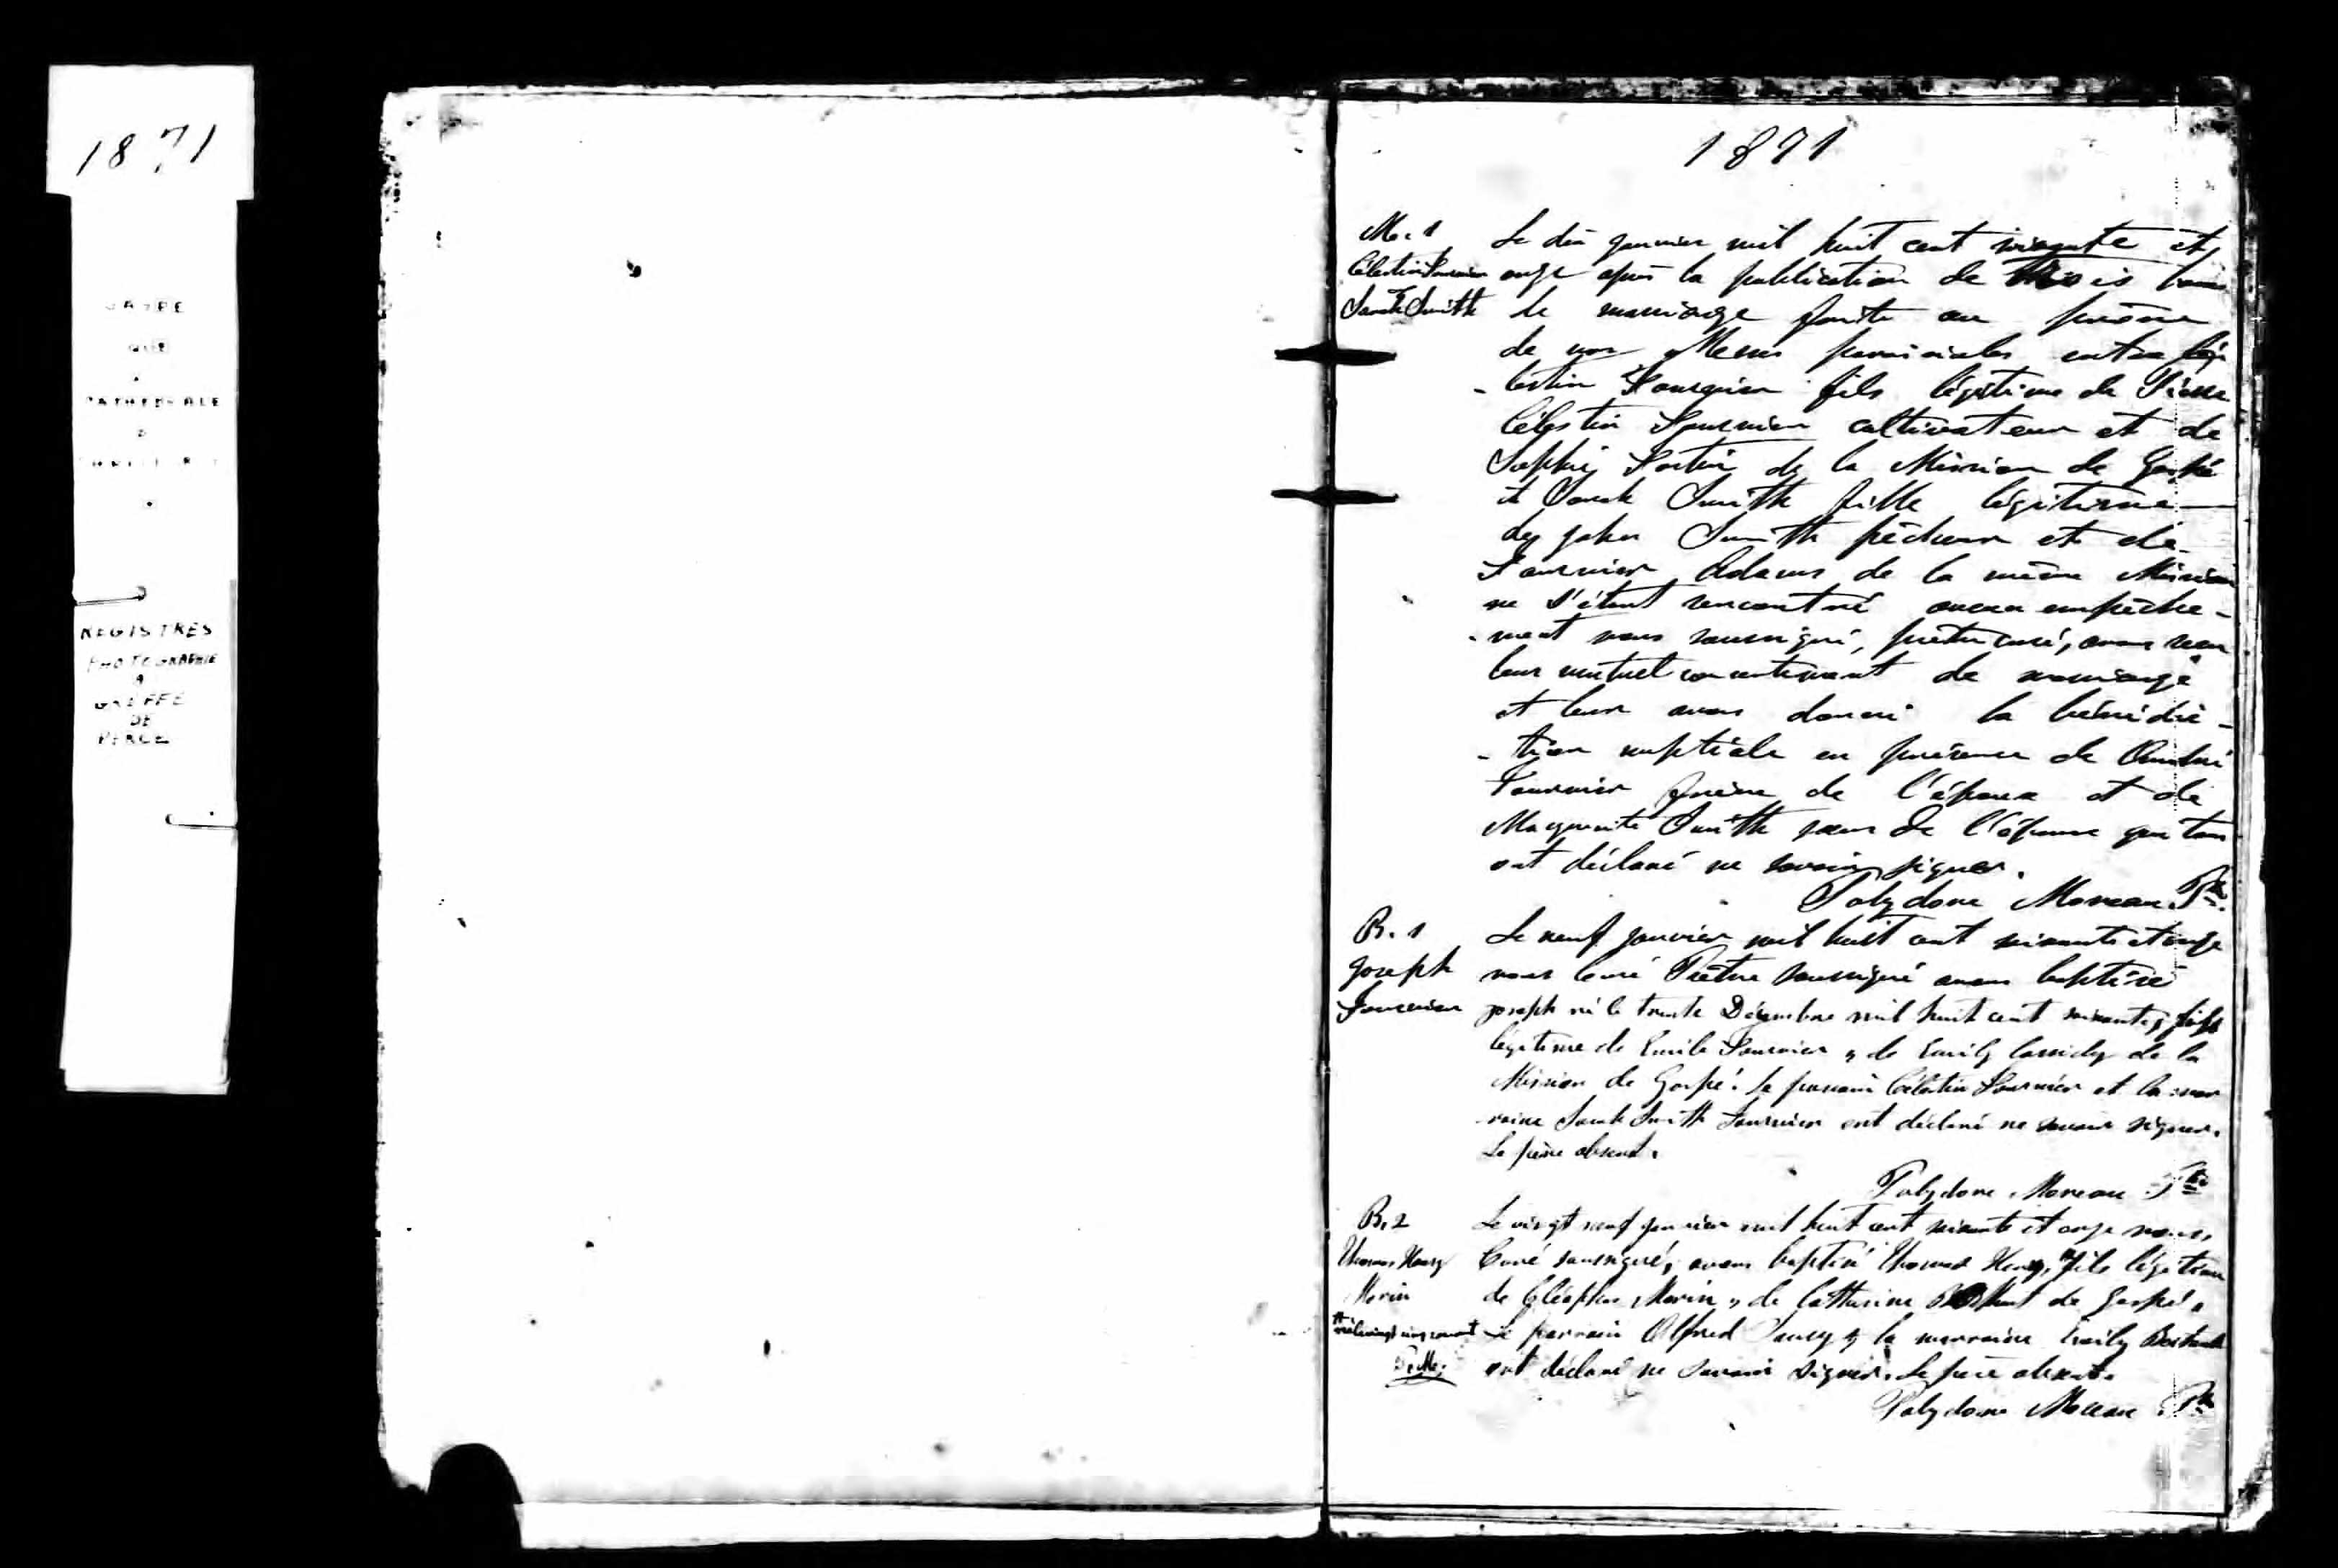 1871
REGISTRES
PHOTOGRAPHIE
A
GREFFE
DE
PERCE
1871
M. 1
Célestin Fournier
Sarah Smith
Le dix janvier mil huit cent soixante et
onze après la publication de trois bans
de mariage faite au prône
de nos Messes paroissiales entre Cé
-lestin Fournier fils légitime de Pierre
Célestin Fournier cultivateur et de
Sophie Fortin de la Mission de Gaspé
et Sarah Smith fille légitime
de John Smith pêcheur et de
Fournier Adams de la même Mission
ne s'étant rencontré aucun empêche-
-ment nous soussigné, prêtre curé, avons reçu
leur mutuel consentement de mariage
et leur avons donné la bénédic-
-tion nuptiale en présence de André
Fournier frère de l'époux et de
Marguerite Smith sœur de l'épouse que tous
ont déclaré ne savoir signer.
Polydore Moreau Ptre
B. 1
Joseph
Fournier
Le neuf janvier mil huit cent soixante et onze
nous Curé Prêtre soussigné avons baptisé
Joseph né le trente Décembre mil huit cent soixante, fils
légitime de Emile Fournier & de Emily Cassidy de la
Mission de Gaspé. Le parrain Célestin Fournier et la mar
raine Sarah Smith Fournier ont déclaré ne savoir signer.
Le père absent.
Polydore Moreau Ptre
B. 2
Thomas Henry
Morin
P. M.
Le vingt neuf janvier mil huit cent soixante et onze nous,
Curé soussigné, avons baptisé Thomas Henry, fils légitime
de Cléophas Morin & de Catherine de Gaspé.
Le parrain Alfred & la marraine Emily
ont déclaré ne savoir signer. Le père absent.
Polydore Moreau Ptre